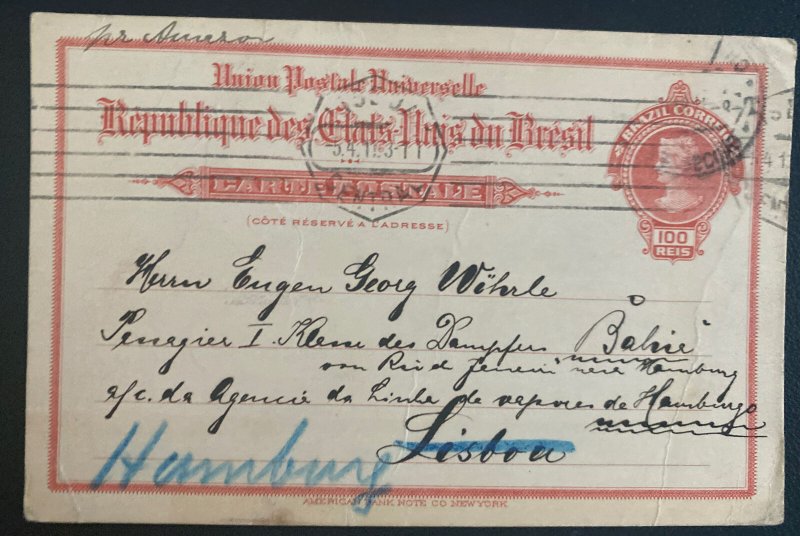 pr Amazon
Union Postale Universelle
République des États-Unis du Brésil
BRAZIL CORREIO
CARTE POSTALE
(CÔTÉ RÉSERVÉ A L'ADRESSE)
100
REIS
Herrn Eugen Georg Wöhrle
Passagier I. Klasse des Dampfers "Bahia"
von Rio de Janeiro nach Hamburg
a/c. da Agencia da Linha de vapores de Hamburgo
Lisboa
Hamburg
AMERICAN BANK NOTE CO NEW YORK